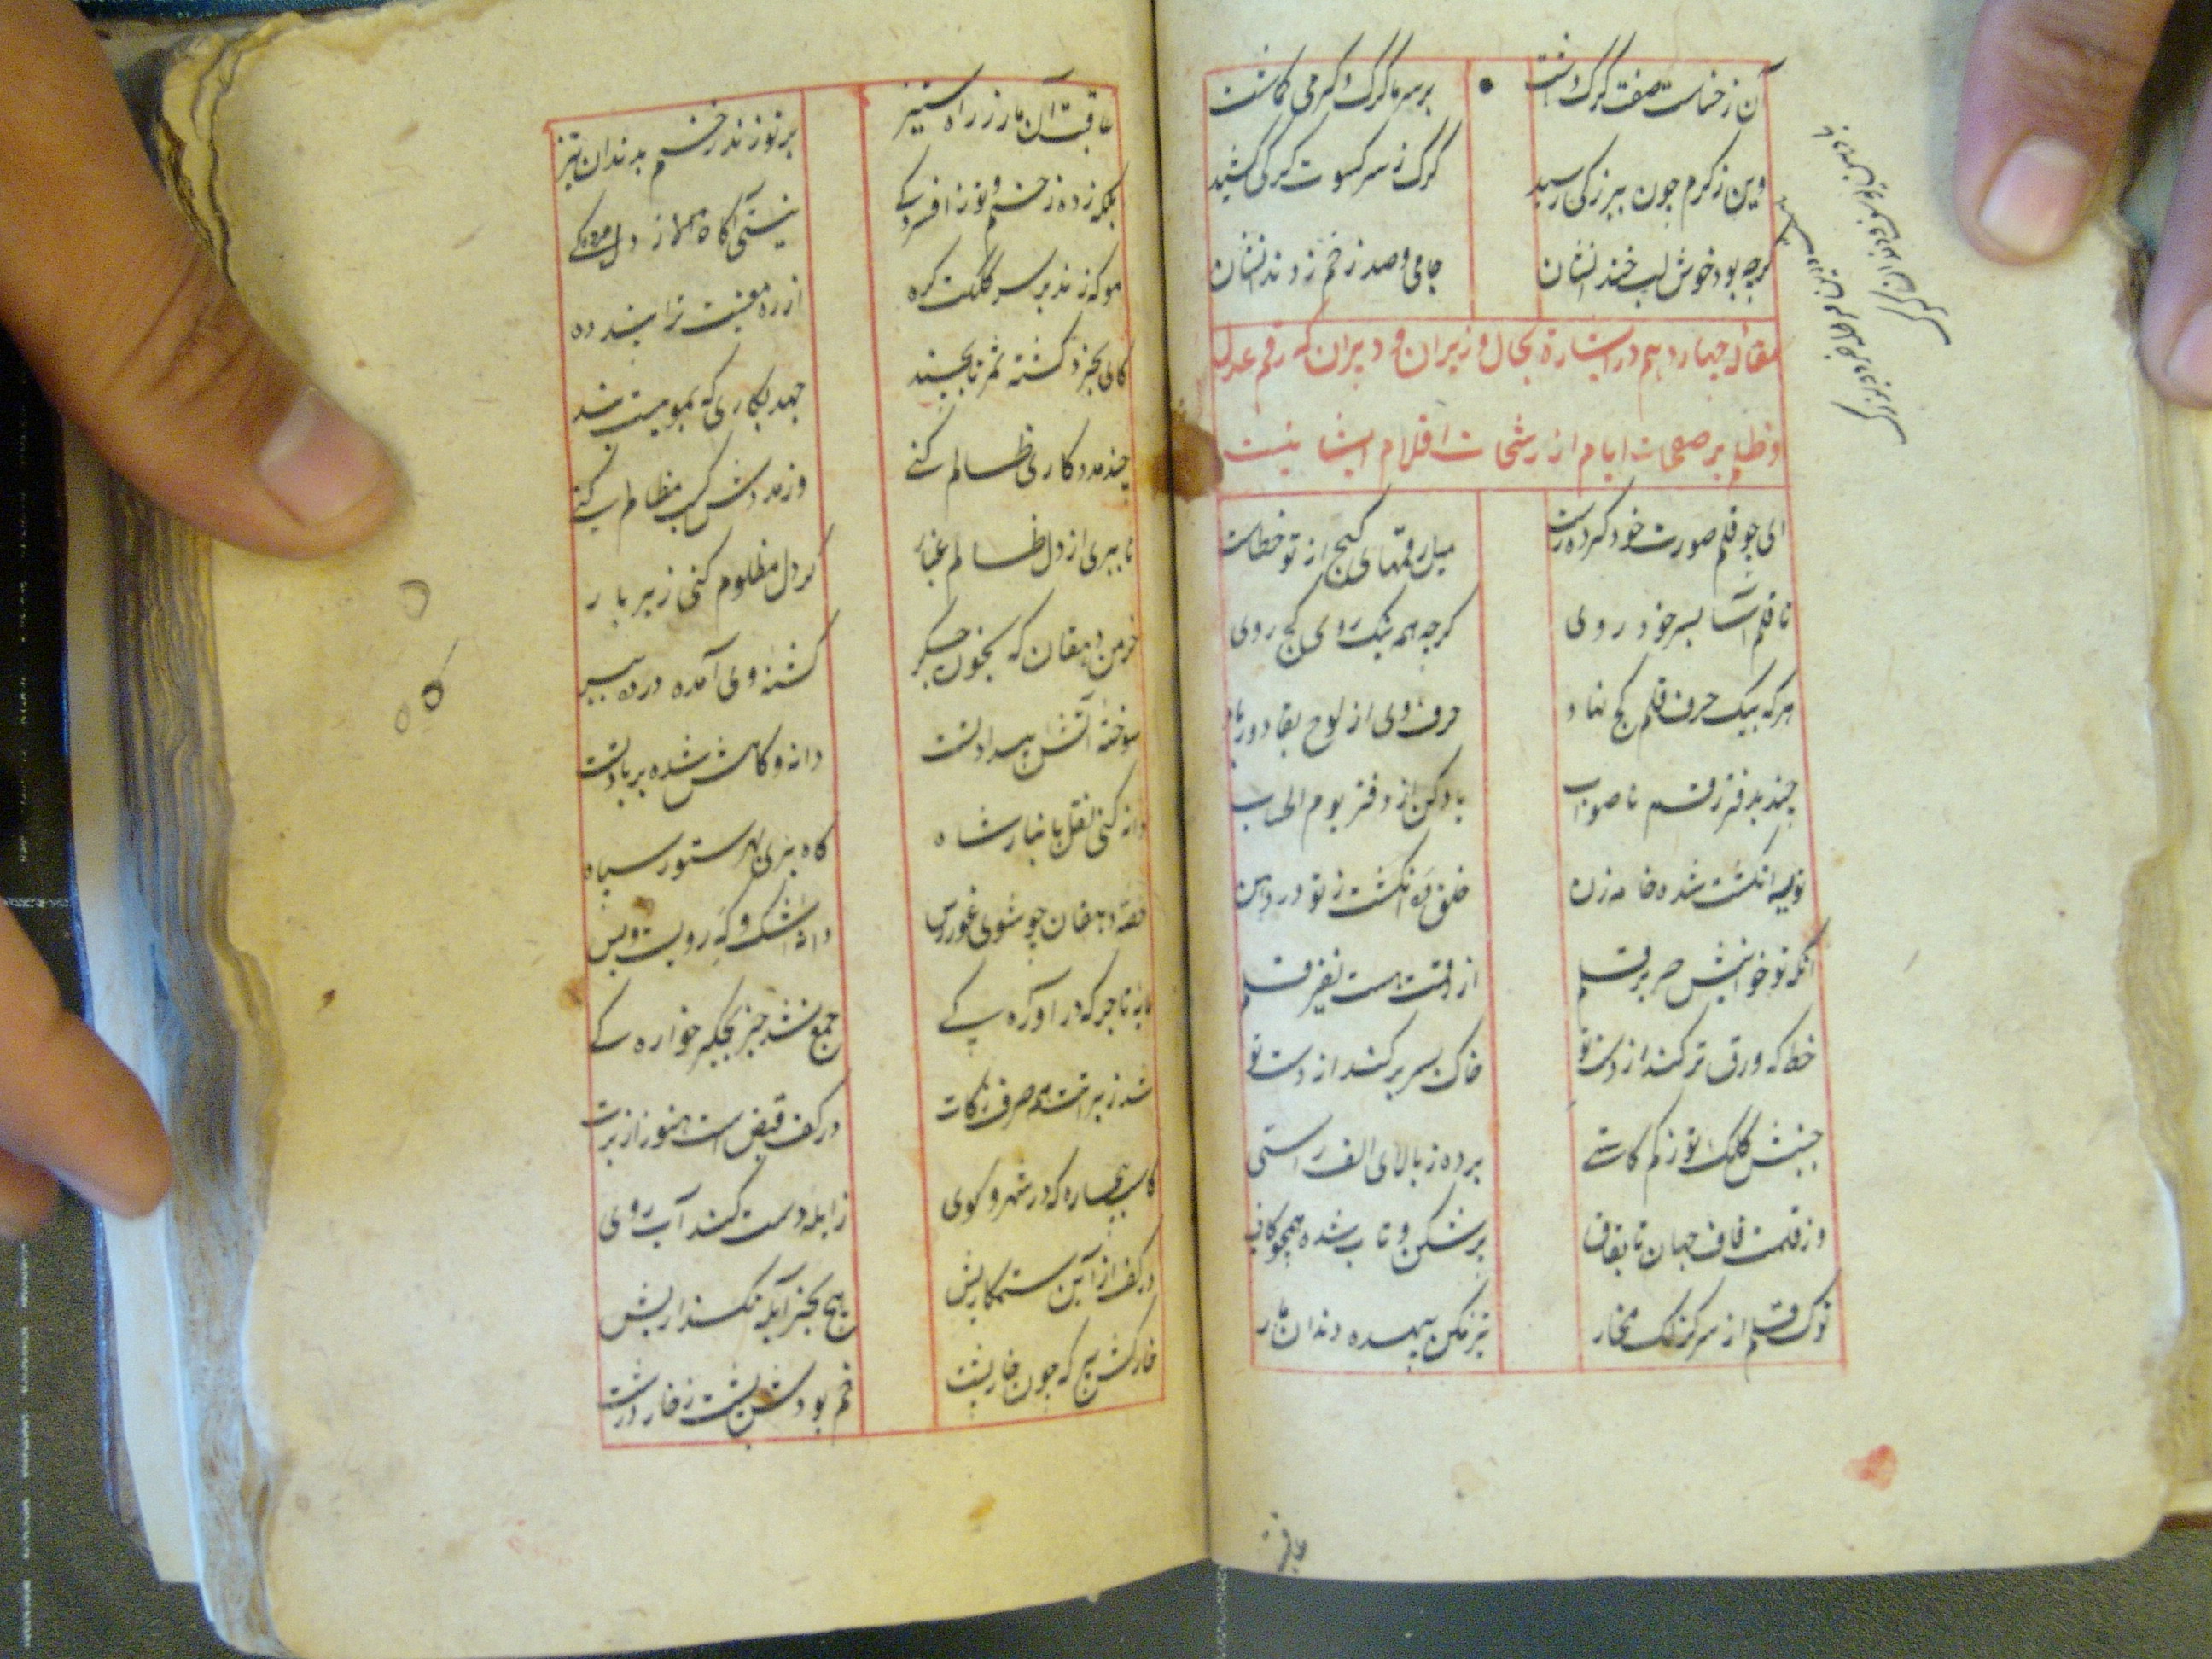 آن ز خساست صفت گرگ داشت
بر سر ما گرگ و گرمی کاشت
وین ز کرم چون ببزرگی رسید
گرگ ز سر کسوت گرگی کشید
گرچه بود خوش لب خندانشان
جامی و صد زخم ز دندانشان
مقاله چهاردهم در اشارة بحال وزیران و دبیران که رقم عدل
و ظلم بر صفحات ایام از رشحات اقلام ایشانیست
ای چو قلم صورت خود کرده راست
میل رقمهای کج از تو خطاست
تا قلم آسا بسر خود روی
گرچه همه نیک روی کج روی
هر که بیک حرف قلم کج نهاد
حرف وی از لوح بقا دور باد
چند بدفتر رقم ناصواب
یاد کن از دفتر یوم الحساب
تو بسه انگشت شده خامه زن
خلق ده انگشت ز تو در دهن
آنکه تو خوانیش صریر قلم
از رقمت هست نفیر قلم
خط که ورق تر کند از دست تو
خاک بسر بر کند از دست تو
جنبش کلک تو ز کم کاستی
برده ز بالای الف راستی
وز قلمت قاف جهان تا بقاف
پر شکن و تاب شده همچو کاف
نوک قلم از سر کزلک مخار
تیز مکن بیهده دندان مار
عاقبت آن مار ز راه ستیز
بر تو زند زخم بدندان تیز
بلکه زده زخم و تو ز افسردگی
نیستی آگاه هم از دل مردگی
مو که زند بر سر کلکت گره
از ره معنیت نماینده ده
کای بخرد گشته ثمر تا بچند
جهد بکاری که بمویست بند
چند مددکاری ظالم کنی
وز مددش کسب مظالم کنی
تا ببری از دل ظالم غبار
گر دل مظلوم کنی زیر بار
خرمن دهقان که بخون جگر
کشته وی آمده در ده بسر
سوخته آتش بیداد تست
دانه و کاهش شده بر باد تست
دانه کنی نقل بانبار شاه
کاه بری بهر ستور سپاه
قصه دهقان چو شوی غوررس
دانه اشک و که رویست و بس
مایه تاجر که در آورد پی
جمع نشد جز بجگرخواره کی
شد ز براتت همه صرف زکات
در کف قبض است هنوز از برات
کاسب بیچاره که در شهر و کوی
ز آبله دست کند آب روی
در کفش آیین ستمکاریش
هیچ بجز آبله نگذاریش
خارکش پیر که چون خارپشت
خم بودش پشت ز خار درشت
عاقبت